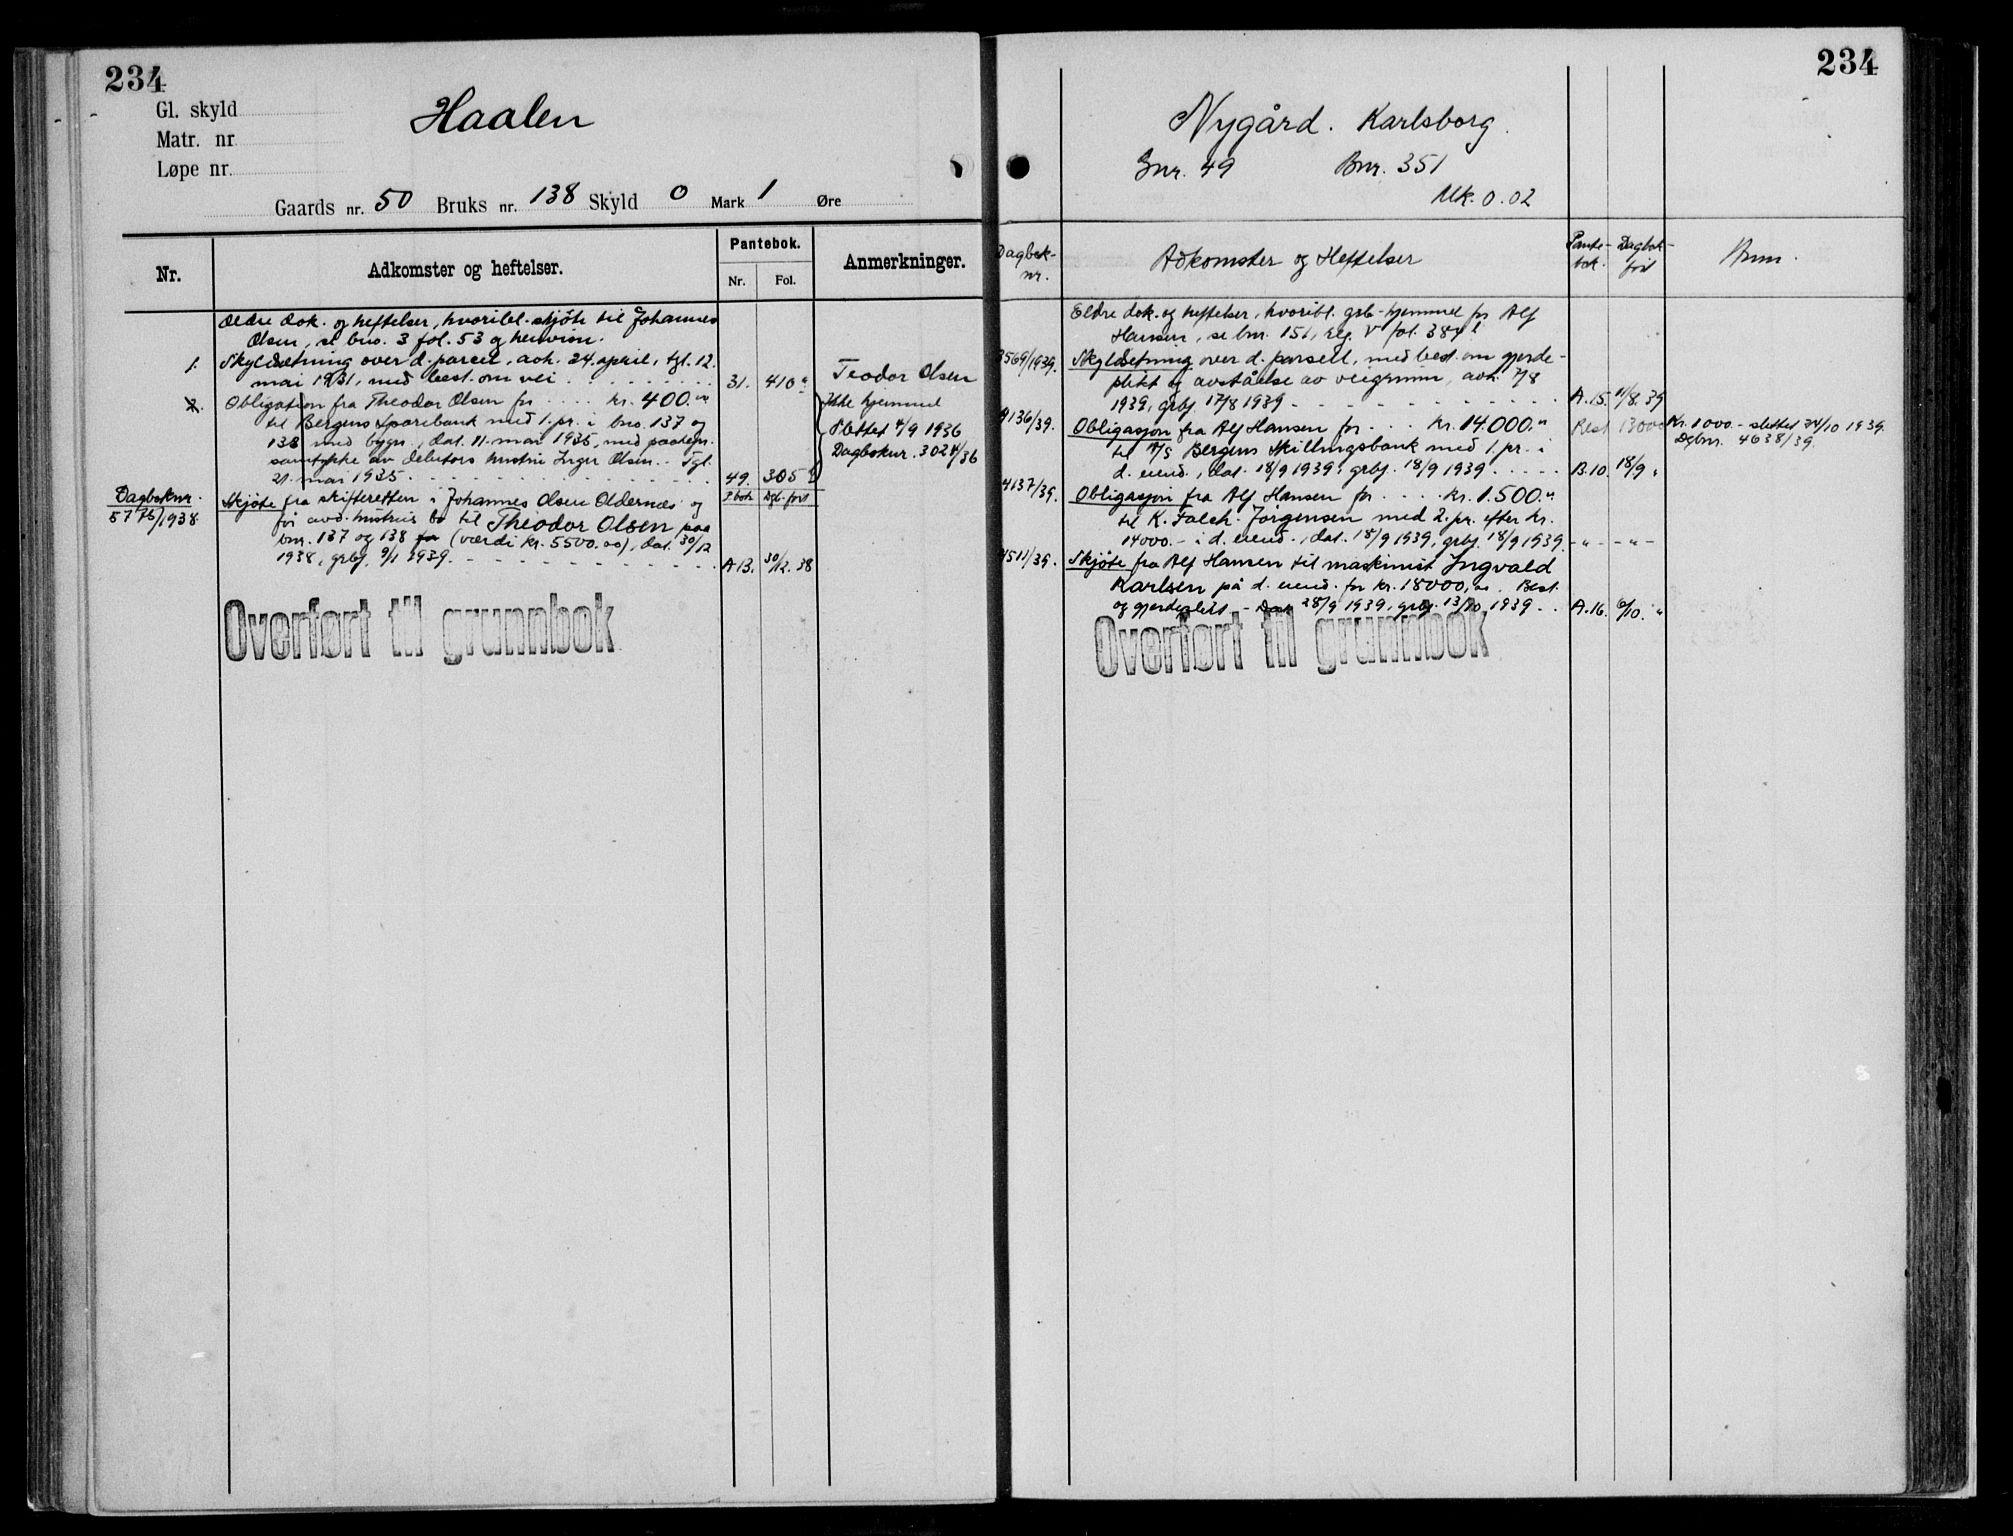 234
Gl. skyld
Matr. nr
Løpe nr.
Haalen
Gaards nr. 50 Bruks nr. 138 Skyld 0 Mark 1 Øre
Nr.
Adkomster og heftelser.
Pantebok.
Nr. Fol.
Anmerkninger.
Ældre dok. og heftelser, hvoribl. skjøte til Johannes
Olsen, se bno. 3 fol. 53 og henvisn.
1. Skyldsetning over d. parcel, avh. 24 april, tgl. 12.
mai 1931, med best. om vei 31. 410 Teodor Olsen
2. Obligation fra Theodor Olsen for kr. 400.- Ikke hjemmel
til Bergens Sparebank med 1. pr. i bno. 137 og Slettet 4/9 1936
138 med bygn., dat. 11. mai 1935, med paategn. Dagboknr. 3024/36
samtykke av debitors hustru Inger Olsen. Tgl.
21. mai 1935 49. 305
Dagboknr. P.bok Dgb. ført
5775/1938. Skjøte fra skifteretten i Johannes Olsen Oldernes og
for avd. hustrus bo til Theodor Olsen paa
bnr. 137 og 138 (værdi kr. 5500.00), dat. 30/12
1938, grbj. 9/1 1939. A 13. 30/12. 38
Overført til grunnbok
234
Nygård. Karlsborg.
Gnr. 49 Bnr. 351
Mk. 0.02
Dagbok-
nr.
Adkomster og Heftelser
Pante-
bok.
Dagbok-
ført
Anm.
Eldre dok. og heftelser, hvoribl. grb-hjemmel for Alf
Hansen, se bnr. 151, reg. V fol. 384
3569/1939. Skyldsetning over d. parsell, med best. om gjerde-
plikt og avståelse av veigrunn, avh. 7/8
1939, grbj. 17/8 1939 A.15. 11/8. 39
4136/39. Obligasjon fra Alf Hansen for kr. 14.000.- Rest 13000 Kr. 1000.- slettet 24/10 1939.
til A/S Bergens Skillingsbank med 1. pr. i Dgbnr. 4638/39.
d. eiend., dat. 18/9 1939, grbj. 18/9 1939 B.10. 18/9 "
4137/39. Obligasjon fra Alf Hansen for kr. 1.500.-
til K. Falch. Jørgensen med 2. pr. efter kr.
14000.- i d. eiend., dat. 18/9 1939, grbj. 18/9 1939. - " - - " -
4511/39. Skjøte fra Alf Hansen til maskinist Ingvald
Karlsen på d. eiend. for kr. 18000,00. Best.
og gjerdeplikt. - Dat. 28/9 1939, grbj. 13/10 1939 A.16. 6/10. "
Overført til grunnbok